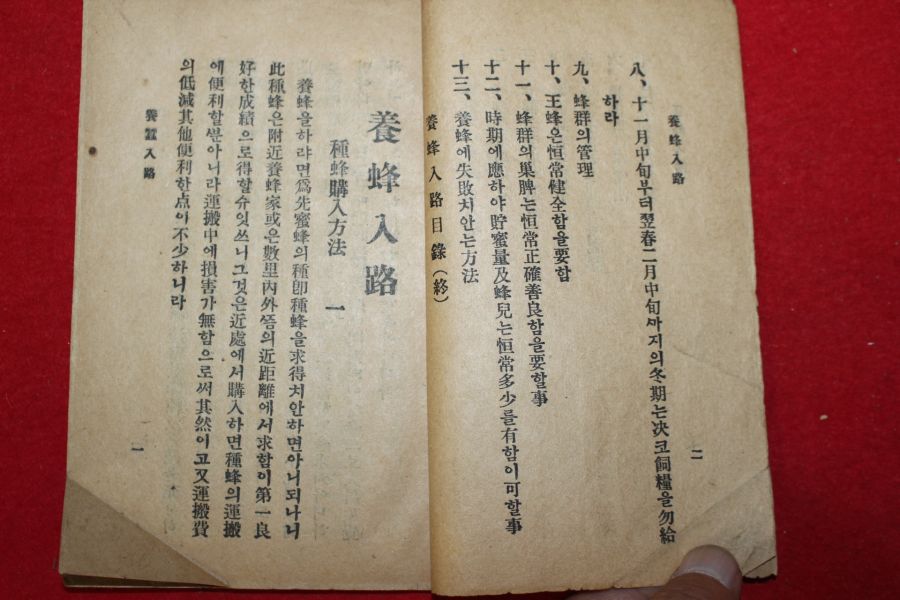 養蜂入路
八、十一月中旬부터翌春二月中旬ᄭᅡ지의冬期는决코飼糧을勿給
하라
九、蜂群의管理
十、王蜂은恒常健全함을要함
十一、蜂群의巢脾는恒常正確善良함을要할事
十二、時期에應하야貯蜜量及蜂兒는恒常多少를有함이可할事
十三、養蜂에失敗치안는方法
養蜂入路目錄(終)
二
養蜂入路
種蜂購入方法 一
養蜂을하랴면爲先蜜蜂의種卽種蜂을求得치안하면아니되나니
此種蜂은附近養蜂家或은數里內外ᄶᅳᆷ의近距離에서求함이第一良
好한成績으로得할슈잇쓰니그것은近處에서購入하면種蜂의運搬
에便利할ᄲᅮᆫ아니라運搬中에損害가無함으로써其然이고又運搬費
의低減其他便利한点이不少하니라
養蠶入路
一